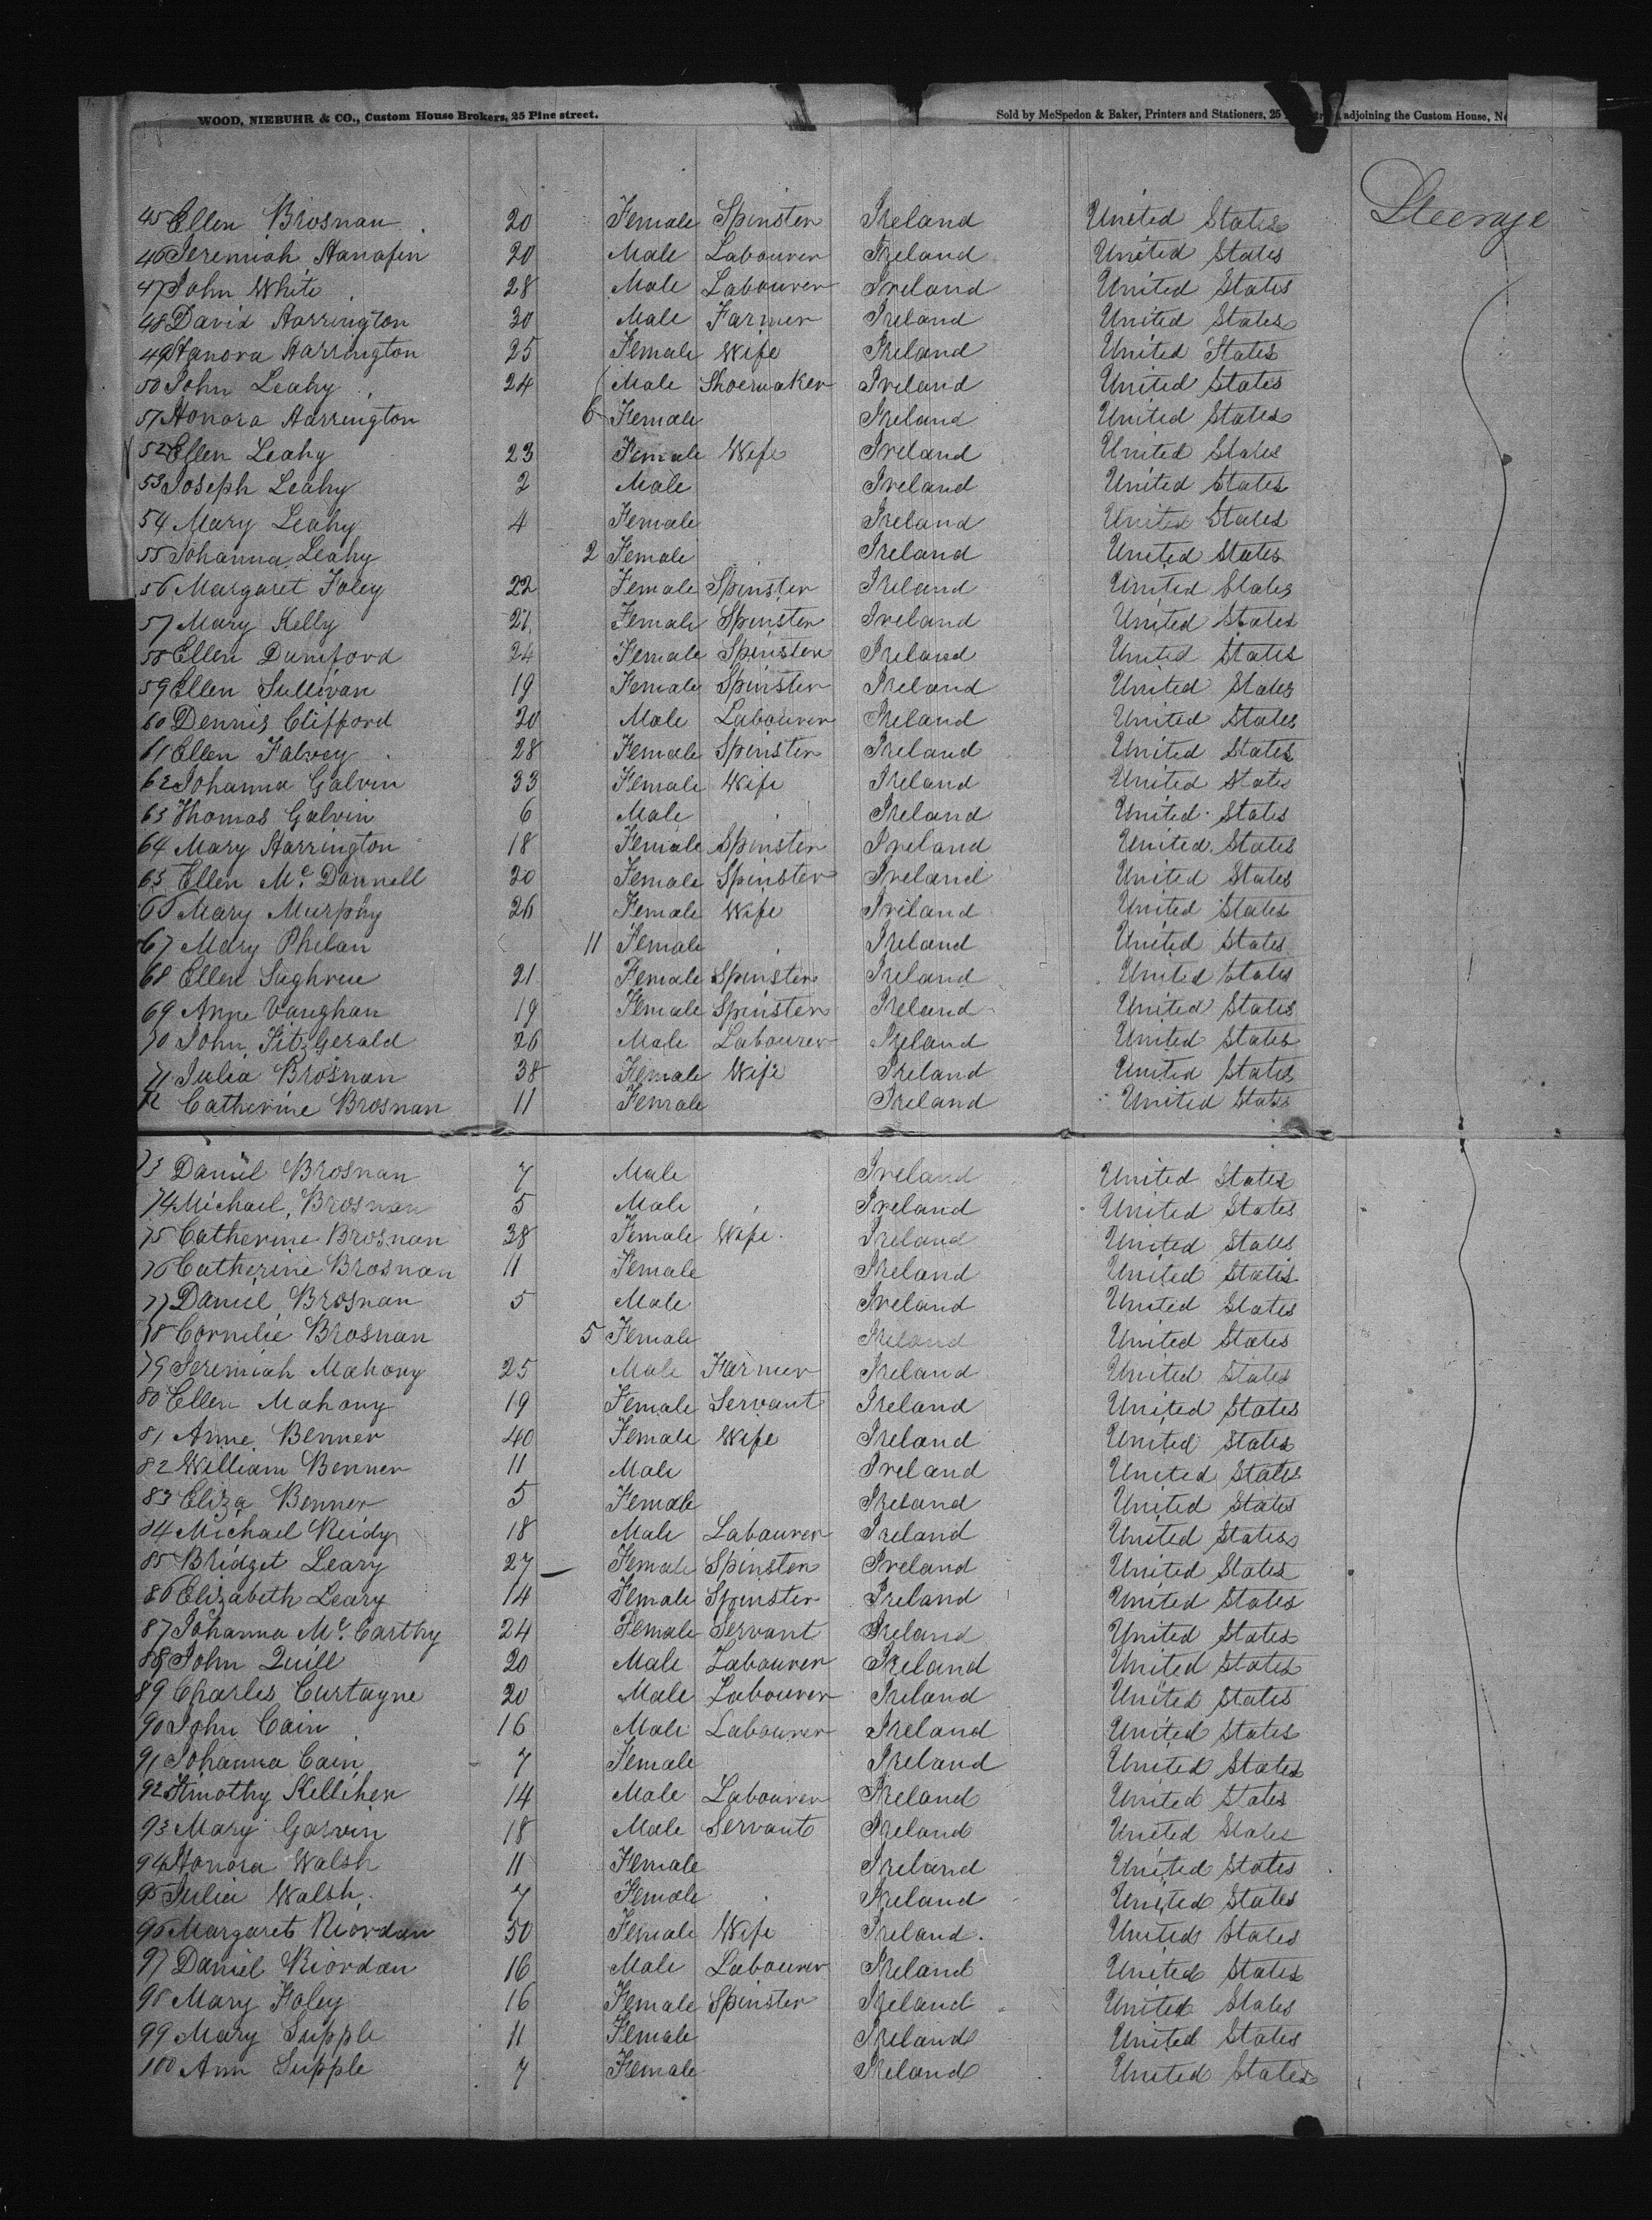 WOOD, NIEBUHR & CO., Custom House Brokers, 25 Pine street. Sold by McSpedon & Baker, Printers and Stationers, 25 adjoining the Custom House,
45 Ellen Brosnan 20 Female Spinster Ireland United States Steerage
46 Jeremiah Hanafin 20 Male Labourer Ireland United States
47 John White 28 Male Labourer Ireland United States
48 David Harrington 30 Male Farmer Ireland United States
49 Hanora Harrington 25 Female Wife Ireland United States
50 John Leahy 24 Male Shoemaker Ireland United States
51 Honora Harrington 6 Female Ireland United States
52 Ellen Leahy 23 Female Wife Ireland United States
53 Joseph Leahy 2 Male Ireland United States
54 Mary Leahy 4 Female Ireland United States
55 Johanna Leahy 2 Female Ireland United States
56 Margaret Foley 22 Female Spinster Ireland United States
57 Mary Kelly 21 Female Spinster Ireland United States
58 Ellen Dumford 24 Female Spinster Ireland United States
59 Ellen Sullivan 19 Female Spinster Ireland United States
60 Dennis Clifford 20 Male Labourer Ireland United States
61 Ellen Falvey 28 Female Spinster Ireland United States
62 Johanna Galvin 33 Female Wife Ireland United States
63 Thomas Galvin 6 Male Ireland United States
64 Mary Harrington 18 Female Spinster Ireland United States
65 Ellen Mc Donnell 20 Female Spinster Ireland United States
66 Mary Murphy 26 Female Wife Ireland United States
67 Mary Phelan 11 Female Ireland United States
68 Ellen Sughrue 21 Female Spinster Ireland United States
69 Anne Vaughan 19 Female Spinster Ireland United States
70 John FitzGerald 26 Male Labourer Ireland United States
71 Julia Brosnan 38 Female Wife Ireland United States
72 Catherine Brosnan 11 Female Ireland United States
73 Daniel Brosnan 7 Male Ireland United States
74 Michael Brosnan 5 Male Ireland United States
75 Catherine Brosnan 38 Female Wife Ireland United States
76 Catherine Brosnan 11 Female Ireland United States
77 Daniel Brosnan 5 Male Ireland United States
78 Cornelie Brosnan 5 Female Ireland United States
79 Jeremiah Mahony 25 Male Farmer Ireland United States
80 Ellen Mahony 19 Female Servant Ireland United States
81 Anne Benner 40 Female Wife Ireland United States
82 William Benner 11 Male Ireland United States
83 Eliza Benner 5 Female Ireland United States
84 Michael Reidy 18 Male Labourer Ireland United States
85 Bridget Leary 27 Female Spinster Ireland United States
86 Elizabeth Leary 14 Female Spinster Ireland United States
87 Johanna Mc Carthy 24 Female Servant Ireland United States
88 John Quill 20 Male Labourer Ireland United States
89 Charles Curtayne 20 Male Labourer Ireland United States
90 John Cain 16 Male Labourer Ireland United States
91 Johanna Cain 7 Female Ireland United States
92 Timothy Kelliher 14 Male Labourer Ireland United States
93 Mary Garvin 18 Male Servant Ireland United States
94 Honora Walsh 11 Female Ireland United States
95 Julia Walsh 7 Female Ireland United States
96 Margaret Riordan 50 Female Wife Ireland United States
97 Daniel Riordan 16 Male Labourer Ireland United States
98 Mary Foley 16 Female Spinster Ireland United States
99 Mary Supple 11 Female Ireland United States
100 Ann Supple 7 Female Ireland United States